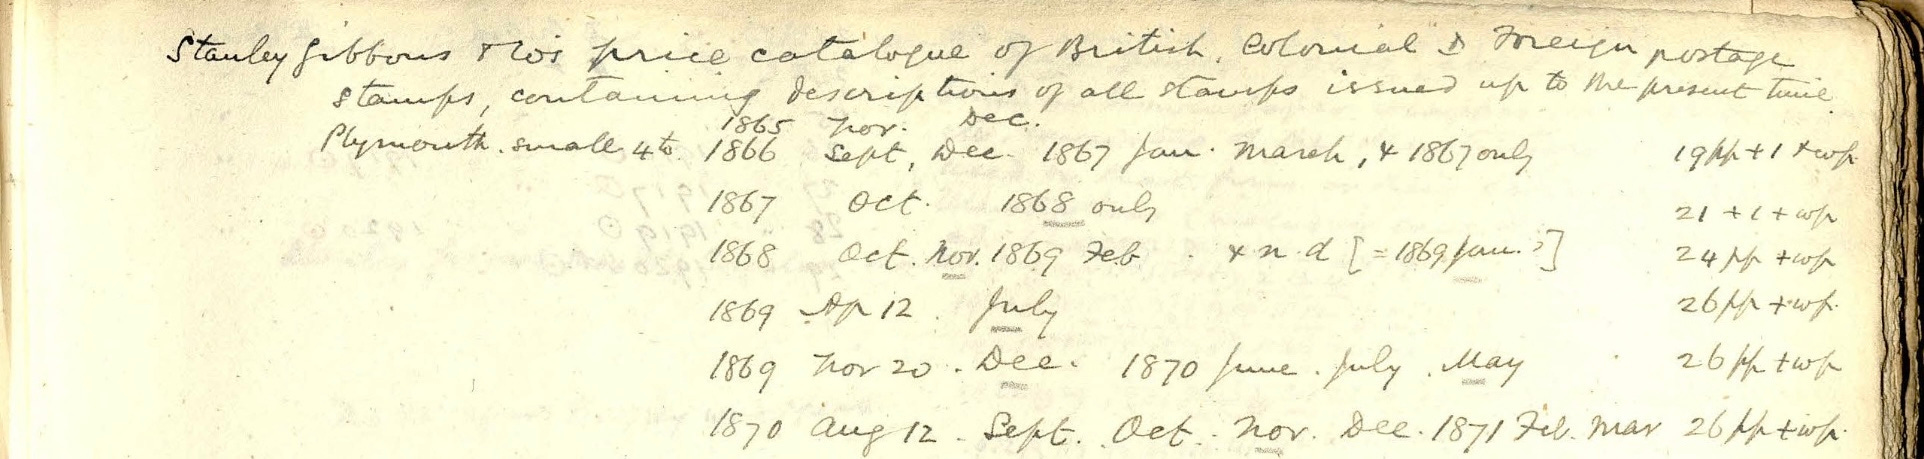 Stanley Gibbons & Co's price catalogue of British, Colonial & Foreign postage
stamps, containing descriptions of all stamps issued up to the present time
1865 Nov. Dec.
Plymouth. small 4to. 1866 Sept, Dec. 1867 Jan. March, & 1867 only 19pp + 1 + wp.
1867 Oct. 1868 only 21 + 1 + wp
1868 Oct. Nov. 1869 Feb. & n.d [=1869 Jan. ?] 24pp + wp
1869 Ap 12. July 26pp + wp.
1869 Nov 20. Dec. 1870 June. July. May 26pp + wp
1870 Aug 12. Sept. Oct. Nov. Dec. 1871 Feb. Mar 26pp + wp.